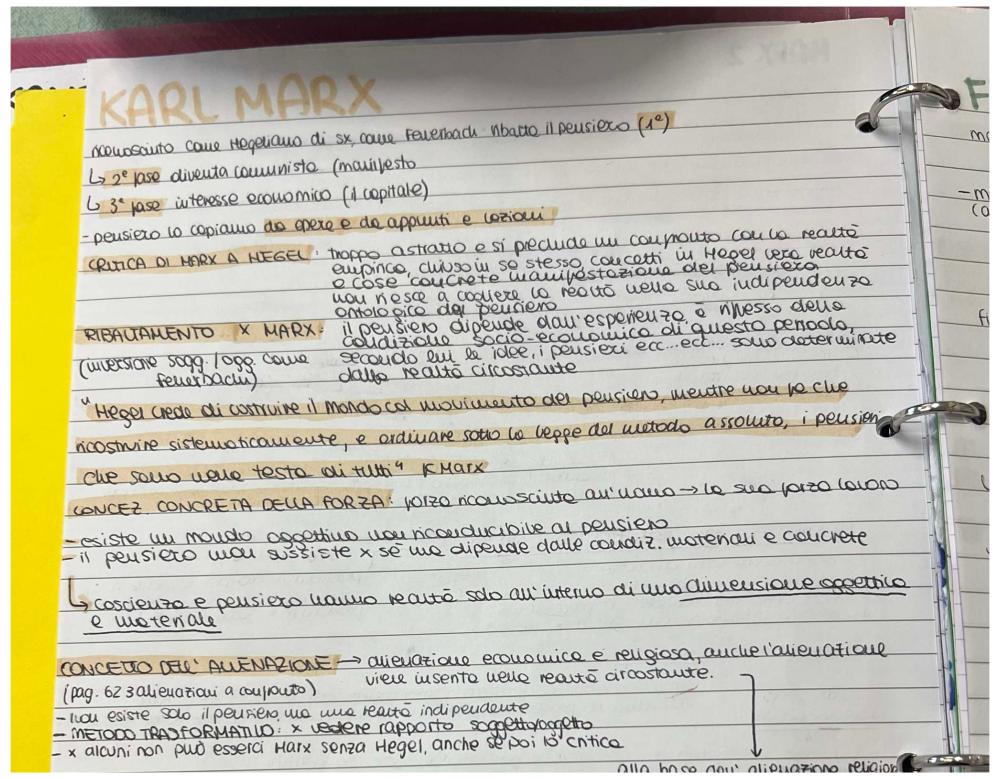 MARX 2
KARL MARX
riconosciuto come Hegeliano di sx, come Feuerbach ribalta il pensiero (1ª)
↳ 2ª fase diventa comunista (manifesto
↳ 3ª fase interesse economico (il capitale)
- pensiero lo capiamo da opere e da appunti e lezioni
CRITICA DI MARX A HEGEL: troppo astratto e si preclude un confronto con la realtà
empirica, chiuso in se stesso concetti in Hegel vera realtà
e cose concrete manifestazione del pensiero
non riesce a cogliere la realtà nella sua indipendenza
ontologica dal pensiero
RIBALTAMENTO X MARX: il pensiero dipende dall'esperienza è riflesso della
condizione socio-economica di questo periodo,
(inversione sogg./ogg. come secondo lui le idee, i pensieri ecc...ect... sono determinate
feuerbach) dalla realtà circostante
"Hegel crede di costruire il mondo col movimento del pensiero, mentre non fa che
ricostruire sistematicamente, e ordinare sotto la legge del metodo assoluto, i pensieri
che sono nella testa di tutti" K Marx
CONCEZ CONCRETA DELLA FORZA: forza riconosciuta all'uomo → la sua forza lavoro
- esiste un mondo oggettivo non riconducibile al pensiero
- il pensiero non sussiste x sé ma dipende dalle condiz. materiali e concrete
↳ coscienza e pensiero hanno realtà solo all'interno di una dimensione oggettiva
e materiale
CONCETTO DELL'ALIENAZIONE → alienazione economica e religiosa, anche l'alienazione
viene inserita nella realtà circostante.
(pag. 62 3 alienazioni a confronto)
- non esiste solo il pensiero, ma una realtà indipendente
- METODO TRASFORMATIVO: x vedere rapporto soggetto/oggetto
- x alcuni non può esserci Marx senza Hegel, anche se poi lo critica
alla base dell'alienazione religios